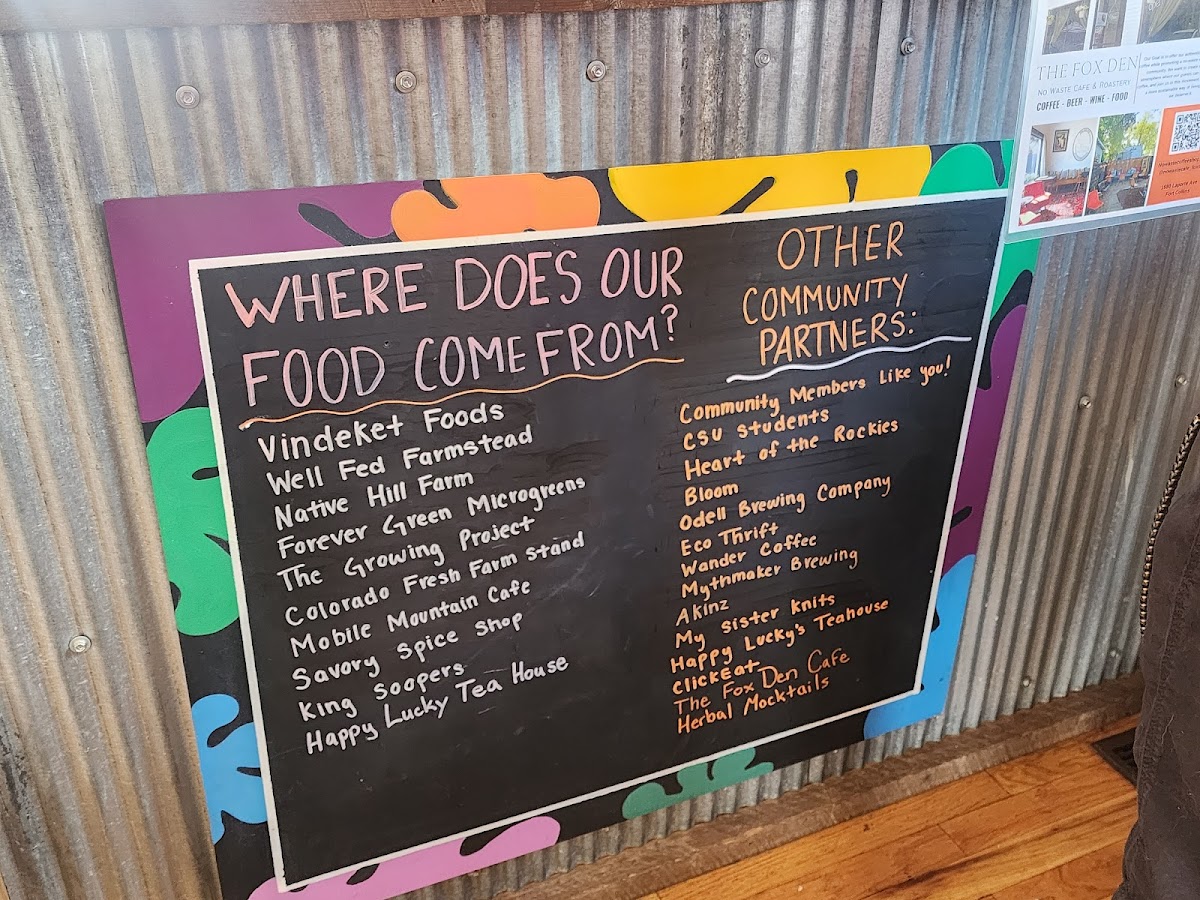 WHERE DOES OUR
FOOD COME FROM?
Vindeket Foods
Well Fed Farmstead
Native Hill Farm
Forever Green Microgreens
The Growing Project
Colorado Fresh Farm Stand
Mobile Mountain Cafe
Savory Spice Shop
King Soopers
Happy Lucky Tea House
OTHER
COMMUNITY
PARTNERS:
Community Members Like you!
CSU Students
Heart of the Rockies
Bloom
Odell Brewing Company
Eco Thrift
Wander Coffee
Mythmaker Brewing
Akinz
My Sister Knits
Happy Lucky's Teahouse
ClickEat
The Fox Den Cafe
Herbal Mocktails
THE FOX DEN
NO WASTE CAFE & ROASTERY
COFFEE - BEER - WINE - FOOD